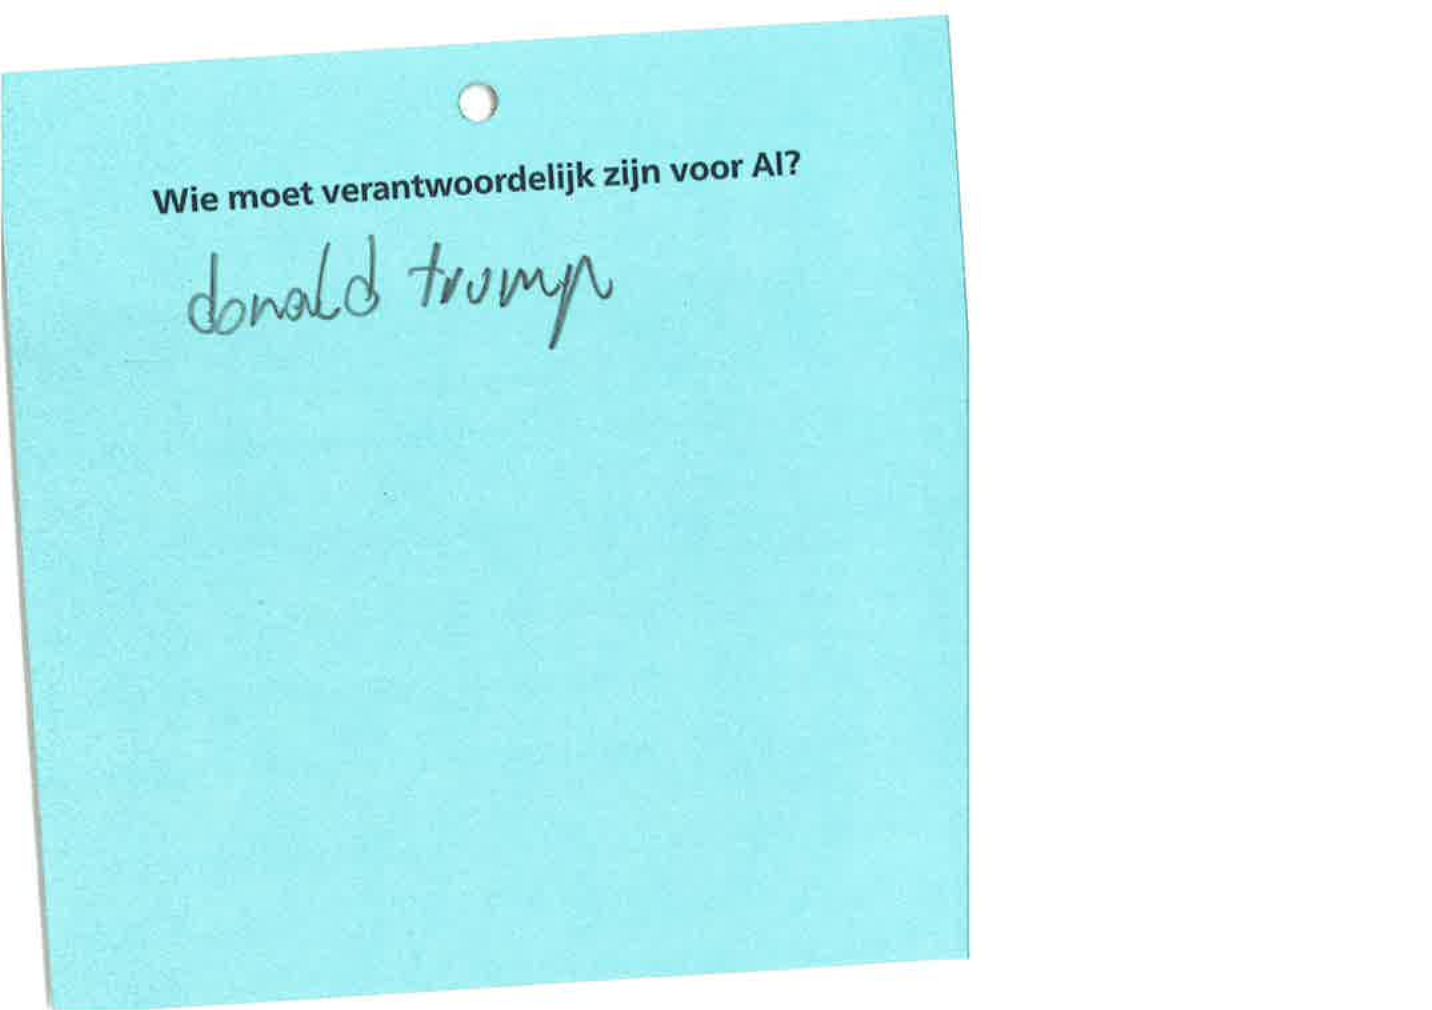 Wie moet verantwoordelijk zijn voor AI?
donald trump